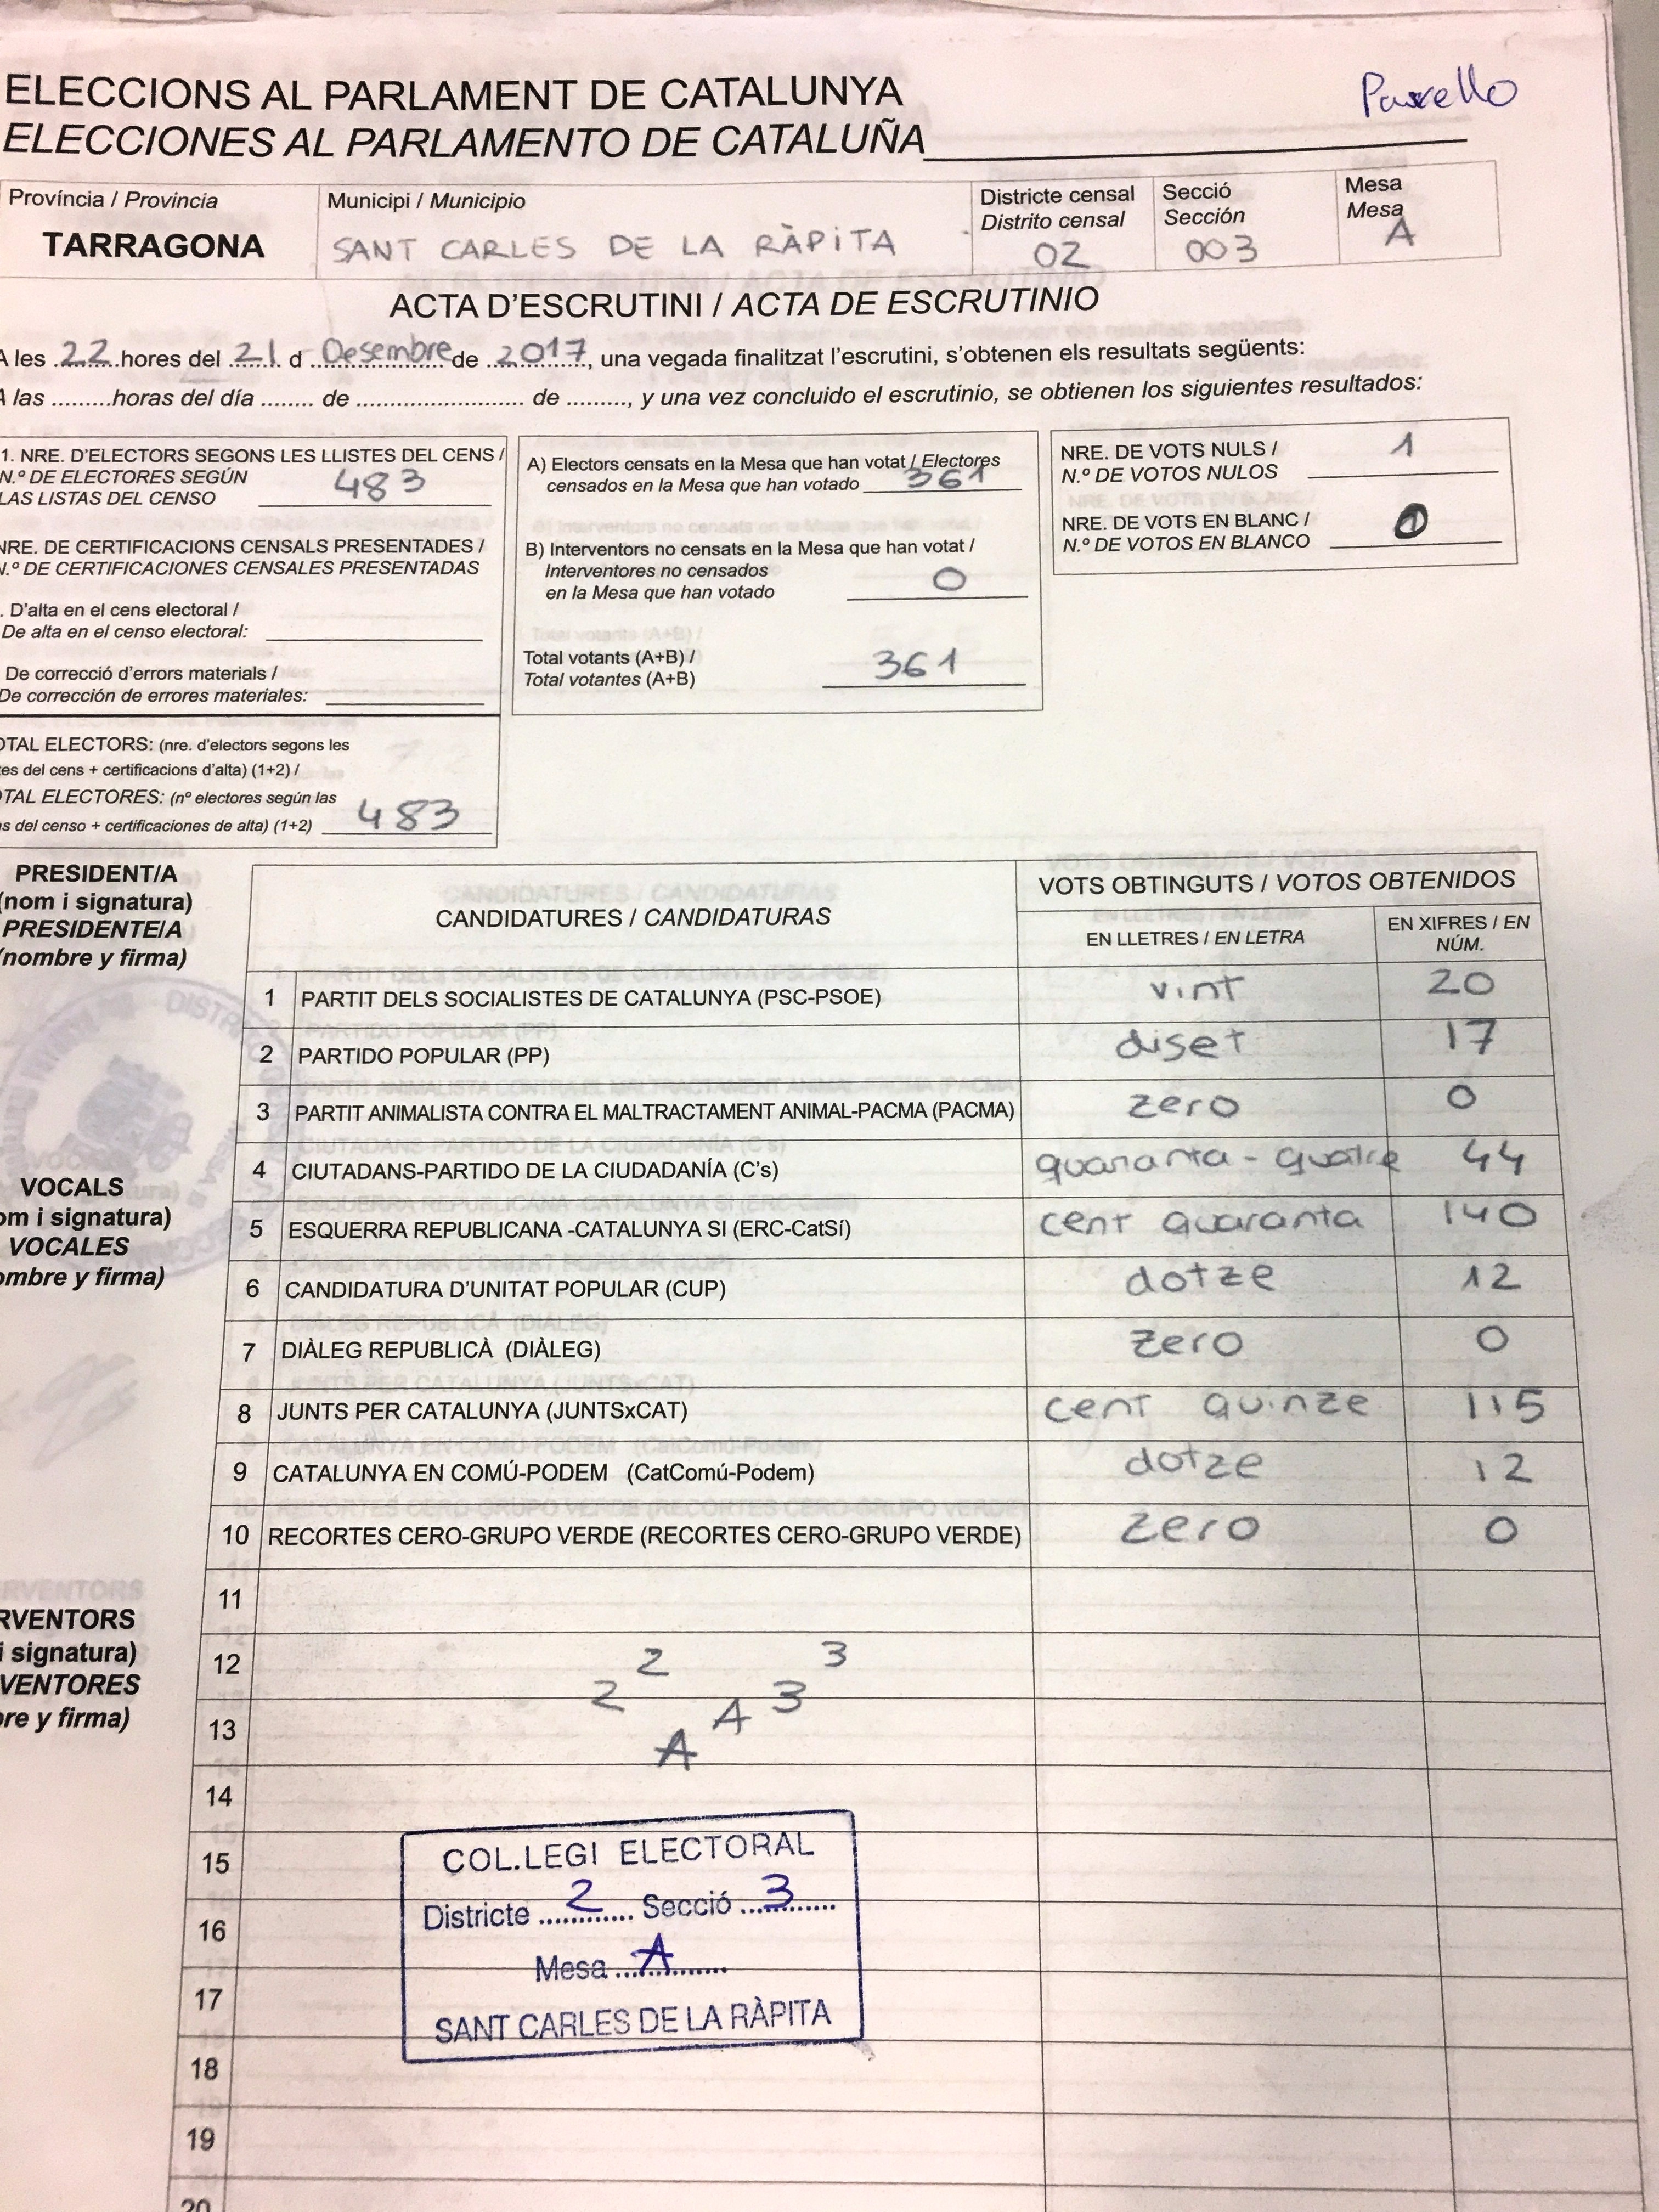 ELECCIONS AL PARLAMENT DE CATALUNYA
ELECCIONES AL PARLAMENTO DE CATALUÑA
Província / Provincia
TARRAGONA
Municipi / Municipio
SANT CARLES DE LA RÀPiTA
Districte censal
Distrito censal
02
Secció
Sección
003
Mesa
Mesa
A
ACTA D'ESCRUTINI / ACTA DE ESCRUTINIO
A les 22 hores del 21 d Desembre de 2017, una vegada finalitzat l'escrutini, s'obtenen els resultats següents:
A las .........horas del día ........ de ........................ de ........., y una vez concluido el escrutinio, se obtienen los siguientes resultados:
1. NRE. D'ELECTORS SEGONS LES LLISTES DEL CENS /
N.º DE ELECTORES SEGÚN
LAS LISTAS DEL CENSO 483
NRE. DE CERTIFICACIONS CENSALS PRESENTADES /
N.º DE CERTIFICACIONES CENSALES PRESENTADAS
. D'alta en el cens electoral /
De alta en el censo electoral:
De correcció d'errors materials /
De corrección de errores materiales:
OTAL ELECTORS: (nre. d'electors segons les
es del cens + certificacions d'alta) (1+2) /
TAL ELECTORES: (nº electores según las
s del censo + certificaciones de alta) (1+2) 483
A) Electors censats en la Mesa que han votat / Electores
censados en la Mesa que han votado 361
B) Interventors no censats en la Mesa que han votat /
Interventores no censados
en la Mesa que han votado 0
Total votants (A+B) /
Total votantes (A+B) 361
NRE. DE VOTS NULS /
N.º DE VOTOS NULOS 1
NRE. DE VOTS EN BLANC /
N.º DE VOTOS EN BLANCO 0
PRESIDENT/A
(nom i signatura)
PRESIDENTE/A
(nombre y firma)
VOCALS
om i signatura)
VOCALES
ombre y firma)
RVENTORS
i signatura)
VENTORES
bre y firma)
CANDIDATURES / CANDIDATURAS
VOTS OBTINGUTS / VOTOS OBTENIDOS
EN LLETRES / EN LETRA
EN XIFRES / EN
NÚM.
1 PARTIT DELS SOCIALISTES DE CATALUNYA (PSC-PSOE) vint 20
2 PARTIDO POPULAR (PP) diset 17
3 PARTIT ANIMALISTA CONTRA EL MALTRACTAMENT ANIMAL-PACMA (PACMA) zero 0
4 CIUTADANS-PARTIDO DE LA CIUDADANÍA (C's) quaranta - quatre 44
5 ESQUERRA REPUBLICANA -CATALUNYA SI (ERC-CatSí) cent quaranta 140
6 CANDIDATURA D'UNITAT POPULAR (CUP) dotze 12
7 DIÀLEG REPUBLICÀ (DIÀLEG) zero 0
8 JUNTS PER CATALUNYA (JUNTSxCAT) cent quinze 115
9 CATALUNYA EN COMÚ-PODEM (CatComú-Podem) dotze 12
10 RECORTES CERO-GRUPO VERDE (RECORTES CERO-GRUPO VERDE) zero 0
11
12 2 3
13 2 A 3
A
14
15
16
17
18
19
20
COL.LEGI ELECTORAL
Districte 2 Secció 3
Mesa A
SANT CARLES DE LA RÀPITA